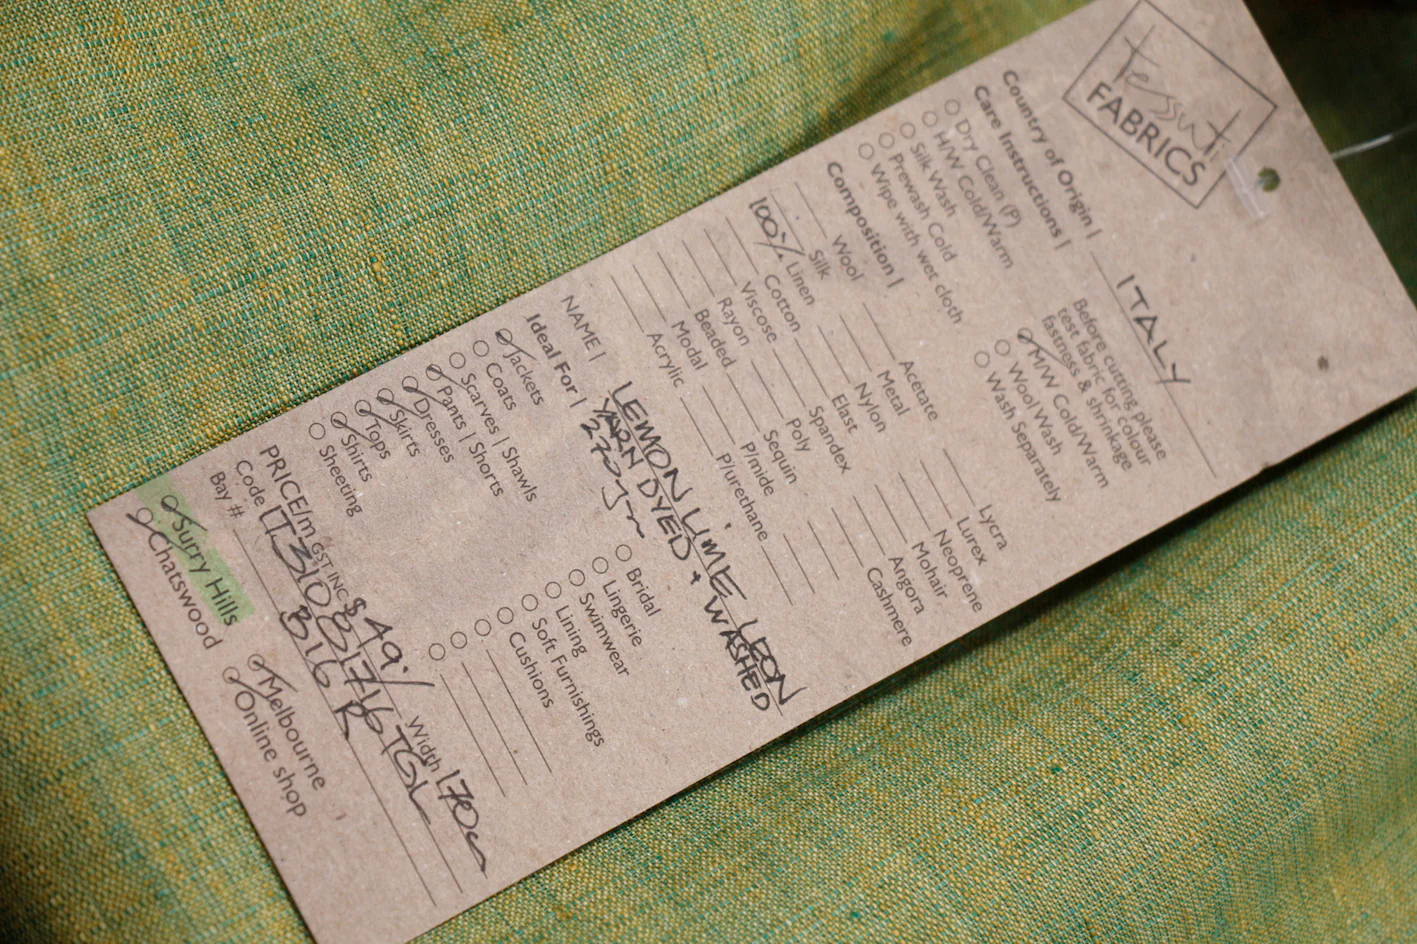 tessuti
FABRICS
Country of Origin | ITALY
Care Instructions |
Dry Clean (P)
H/W Cold/Warm
Silk Wash
Prewash Cold
Wipe with wet cloth
Before cutting please
test fabric for colour
fastness & shrinkage
M/W Cold/Warm
Wool Wash
Wash Separately
Composition |
Wool
Silk
100% Linen
Cotton
Viscose
Rayon
Beaded
Modal
Acrylic
Acetate
Metal
Nylon
Elast
Spandex
Poly
Sequin
P/mide
P/urethane
Lycra
Lurex
Neoprene
Mohair
Angora
Cashmere
NAME | LEMON LIME LEON
YARN DYED + WASHED
Ideal For |
Jackets
Coats
Scarves | Shawls
Pants | Shorts
Dresses
Skirts
Tops
Shirts
Sheeting
Bridal
Lingerie
Swimwear
Lining
Soft Furnishings
Cushions
PRICE/m GST INC $49 Width 170cm
Code
Bay # B16 R
Surry Hills
Chatswood
Melbourne
Online shop